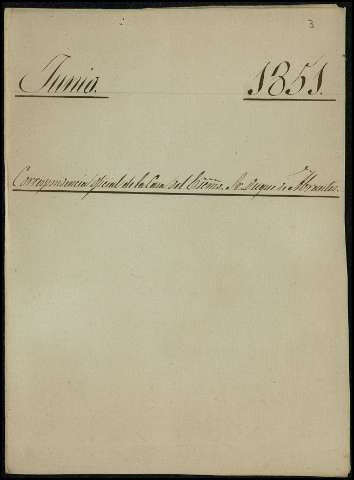 3
Junio. 1851.
Correspondencia oficial de la Casa del Excmo. Sr. Duque de Abrantes.